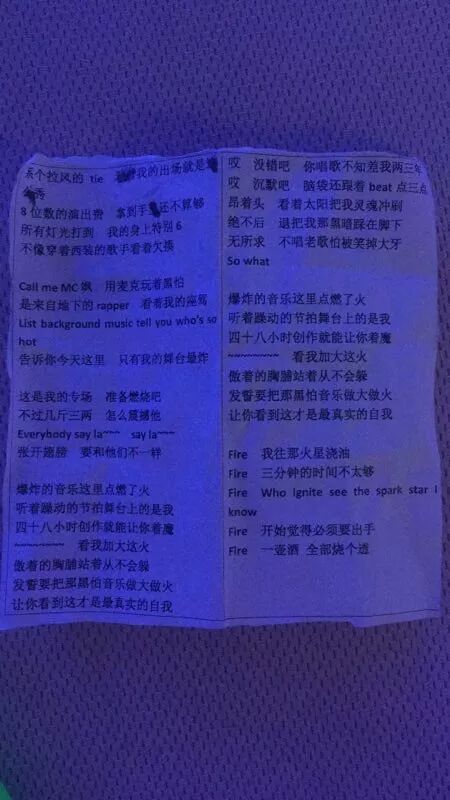 个拉风的 tie 我的出场就是
秀
8 位数的演出费 拿到手 还不算够
所有灯光打到 我的身上特别 6
不像穿着西装的歌手看着欠揍
Call me MC 飒 用麦克玩着黑怕
是来自地下的 rapper 看看我的座驾
List background music tell you who's so
hot
告诉你今天这里 只有我的舞台最炸
这是我的专场 准备燃烧吧
不过几斤三两 怎么震撼他
Everybody say la~~~ say la~~~
张开翅膀 要和他们不一样
爆炸的音乐这里点燃了火
听着躁动的节拍舞台上的是我
四十八小时创作就能让你着魔
~~~~~~~~ 看我加大这火
傲着的胸脯站着从不会躲
发誓要把那黑怕音乐做大做火
让你看到这才是最真实的自我
哎 没错吧 你唱歌不知差我两三年
哎 沉默吧 脑袋还跟着 beat 点三点
昂着头 看着太阳把我灵魂冲刷
绝不后 退把我那黑暗踩在脚下
无所求 不唱老歌怕被笑掉大牙
So what
爆炸的音乐这里点燃了火
听着躁动的节拍舞台上的是我
四十八小时创作就能让你着魔
~~~~~~~~ 看我加大这火
傲着的胸脯站着从不会躲
发誓要把那黑怕音乐做大做火
让你看到这才是最真实的自我
Fire 我往那火星浇油
Fire 三分钟的时间不太够
Fire Who Ignite see the spark star I
know
Fire 开始觉得必须要出手
Fire 一壶酒 全部烧个透